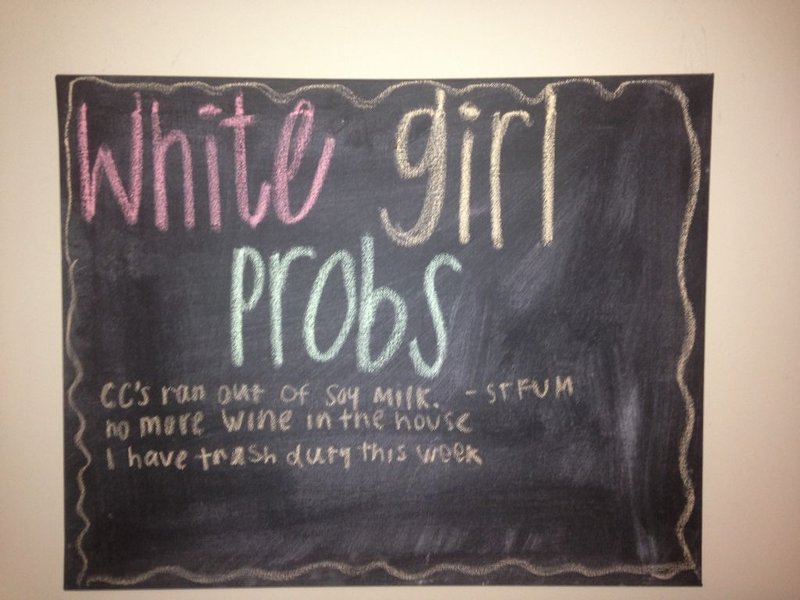 White girl
Probs
CC's ran out of soy milk. - STFUM
no more wine in the house
I have trash duty this week